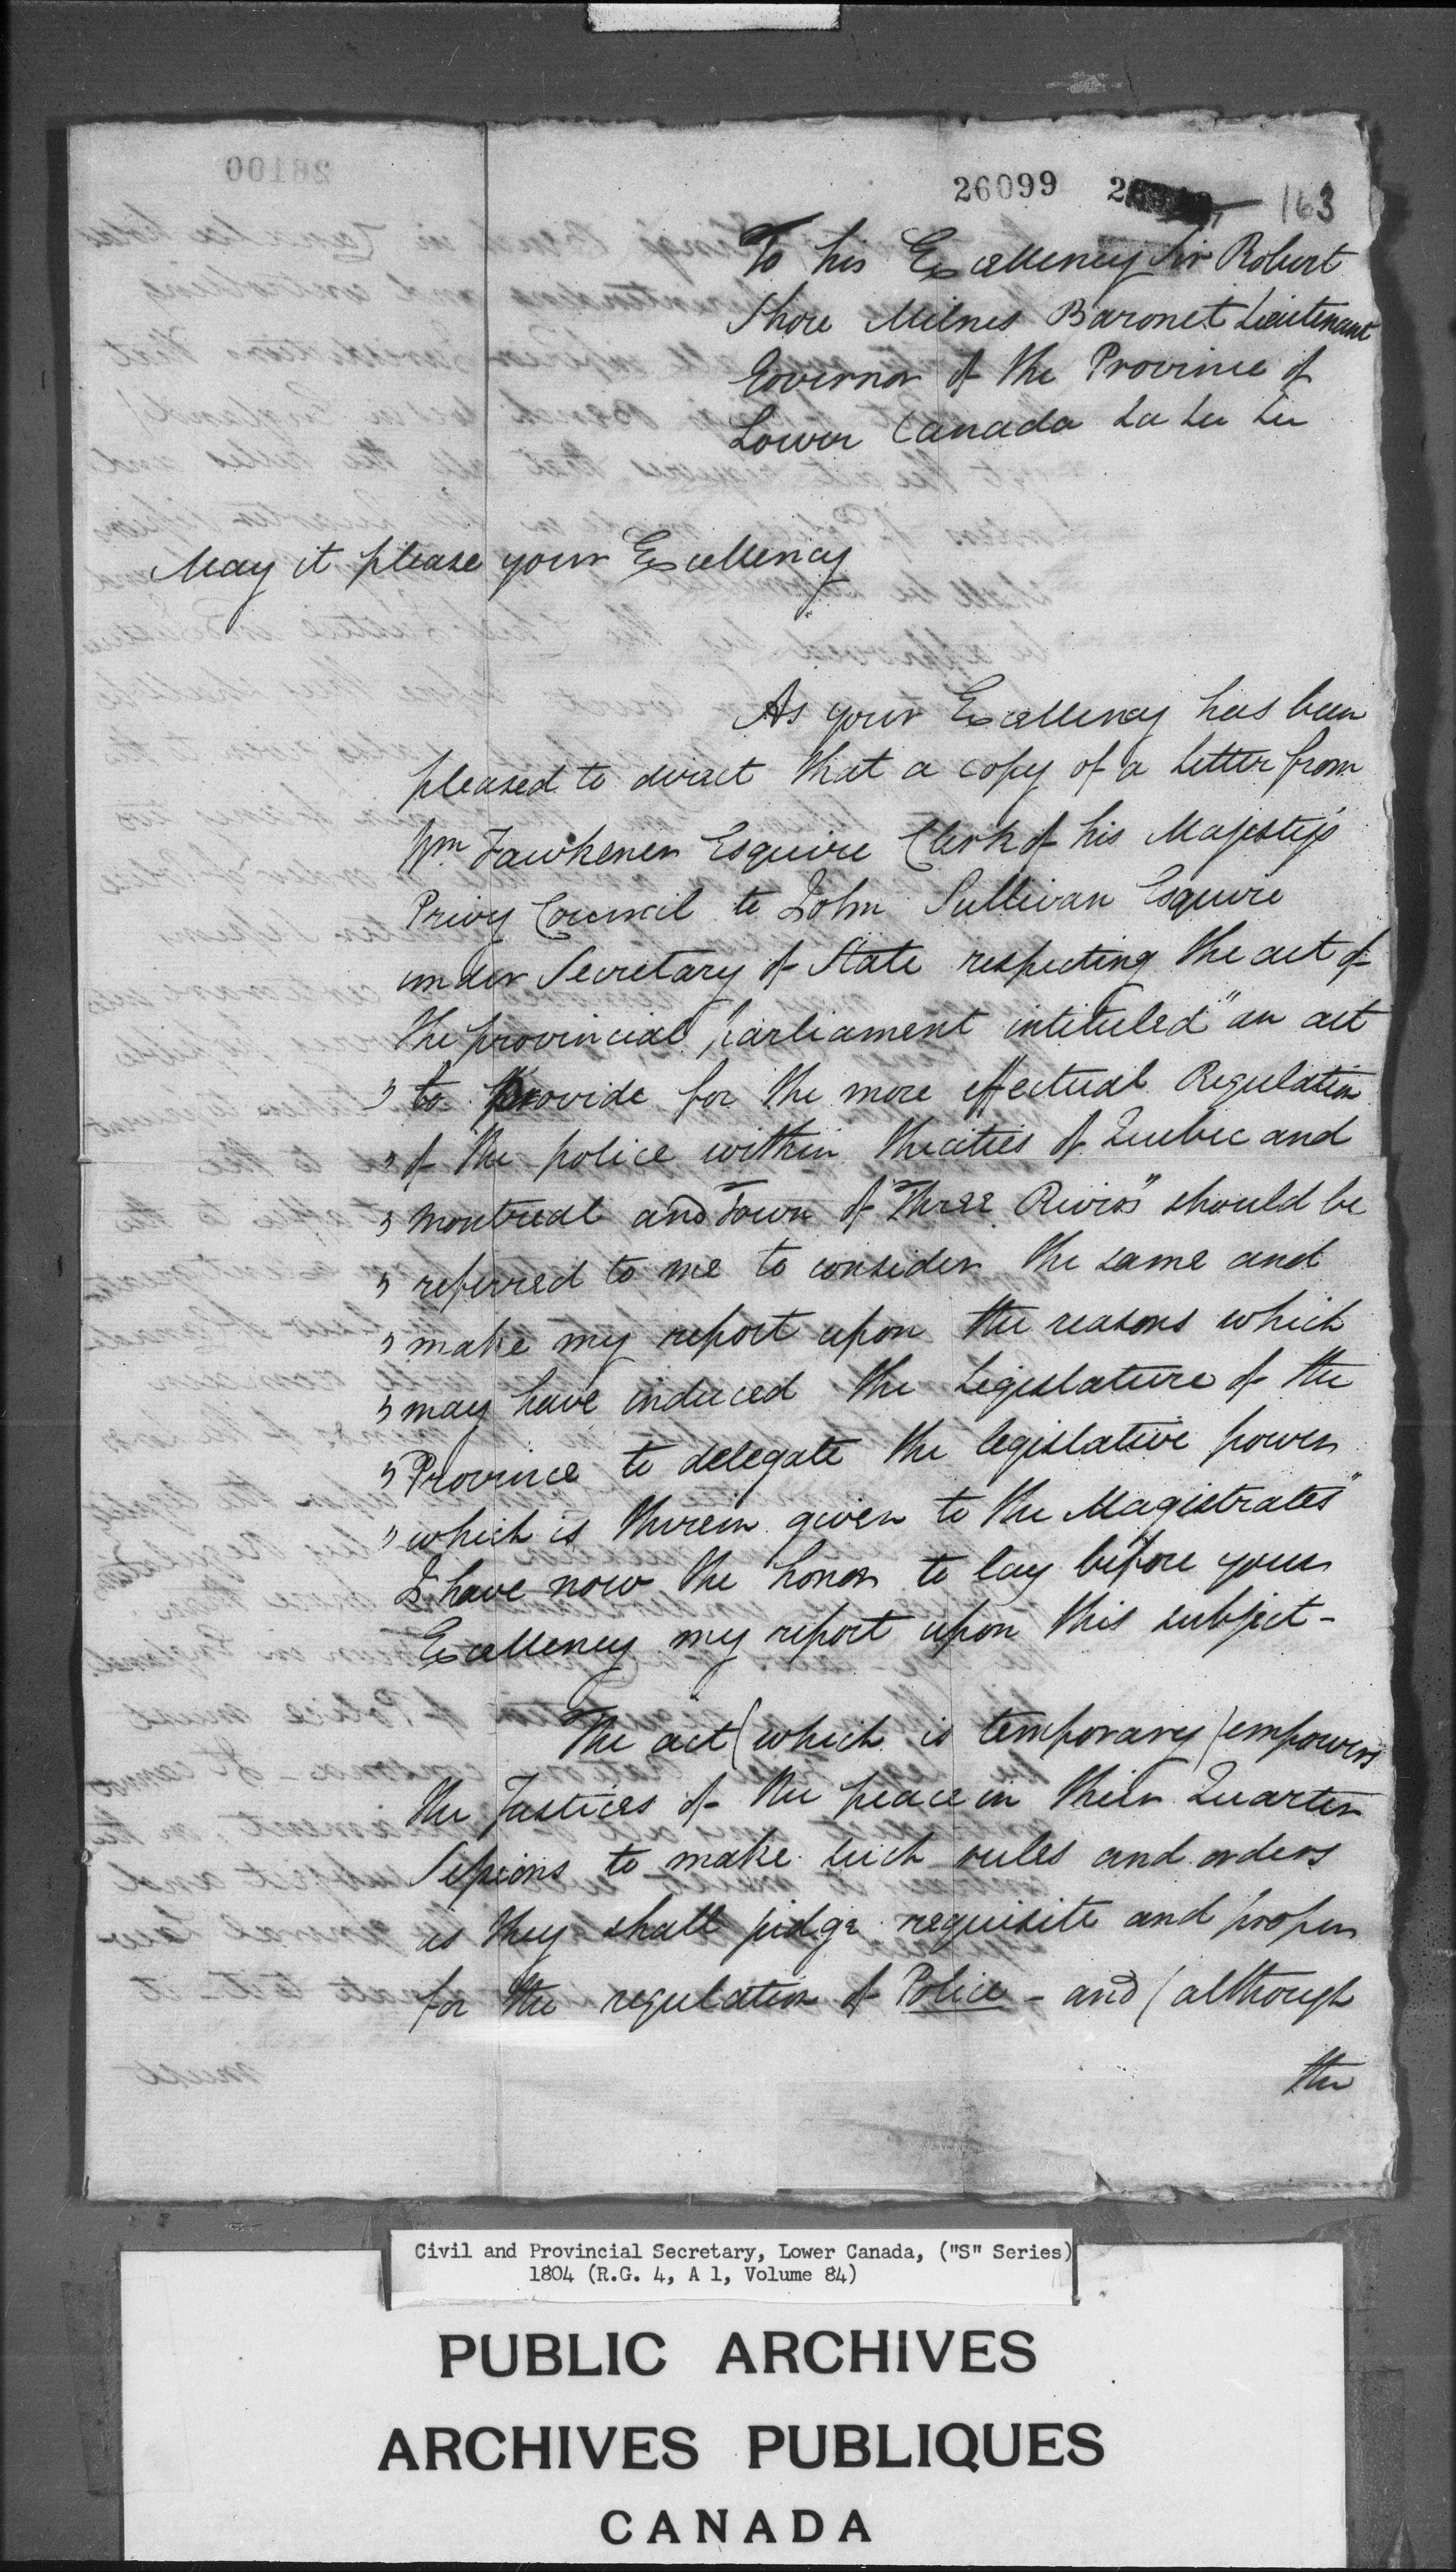 26099 163
To his Excellency Sir Robert
Shore Milnes Baronet Lieutenant
Governor of the Province of
Lower Canada &a &c &c
May it please your Excellency
As your Excellency has been
pleased to direct that a copy of a Letter from
Wm Fawkener Esquire Clerk of his Majesty's
Privy Council to John Sullivan Esquire
under Secretary of State respecting the act of
the provincial parliament intituled "an act
" to provide for the more effectual Regulation
" of the police within the cities of Quebec and
" Montreal and Town of Three Rivers" should be
" referred to me to consider the same and
" make my report upon the reasons which
" may have induced the Legislature of the
" Province to delegate the legislative power
" which is therein given to the Magistrates"
I have now the honor to lay before your
Excellency my report upon this subject -
The act (which is temporary) empowers
the Justices of the peace in their Quarter
Sessions to make such rules and orders
as they shall judge requisite and proper
for the regulation of Police - and (although
the
Civil and Provincial Secretary, Lower Canada, ("S" Series)
1804 (R.G. 4, A 1, Volume 84)
PUBLIC ARCHIVES
ARCHIVES PUBLIQUES
CANADA